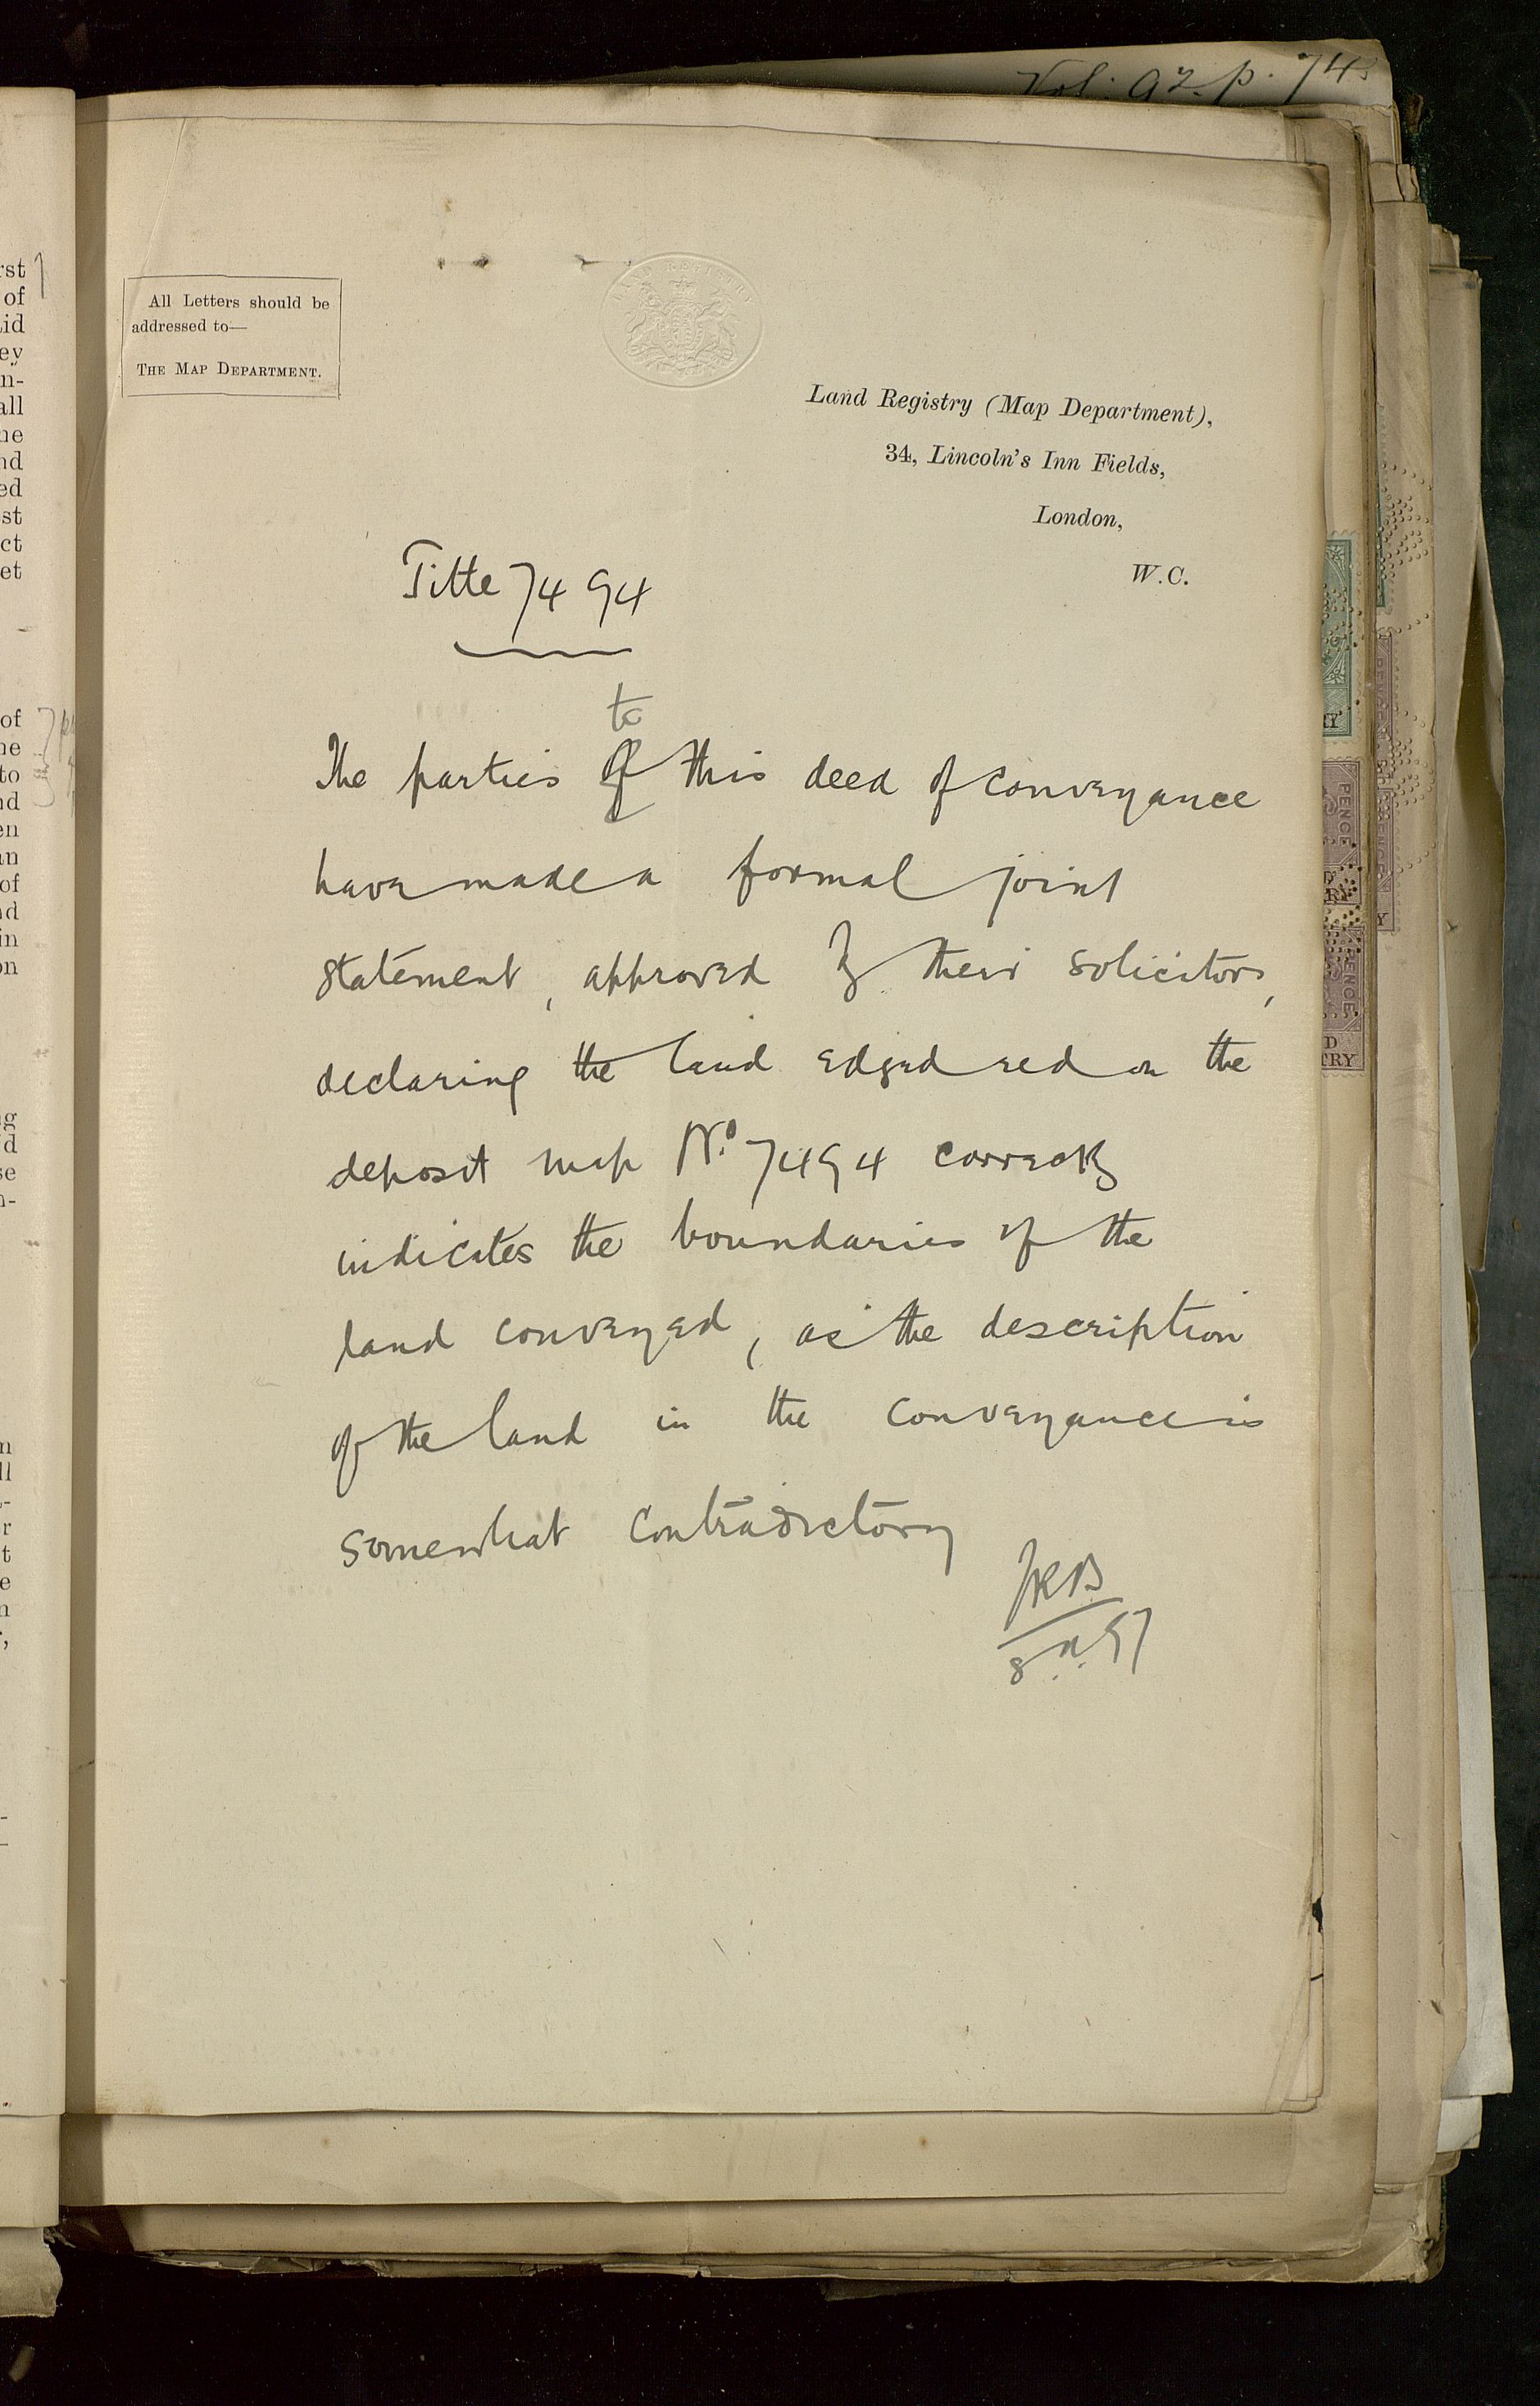 Vol: 92. p. 74
All Letters should be
addressed to—
THE MAP DEPARTMENT.
LAND REGISTRY
Land Registry (Map Department),
34, Lincoln's Inn Fields,
London,
W.C.
Title 7494
to
The parties of this deed of conveyance
have made a formal joint
statement, approved by their solicitors,
declaring the land edged red on the
deposit map No. 7494 correctly
indicates the boundaries of the
land conveyed, as the description
of the land in the conveyance is
somewhat contradictory